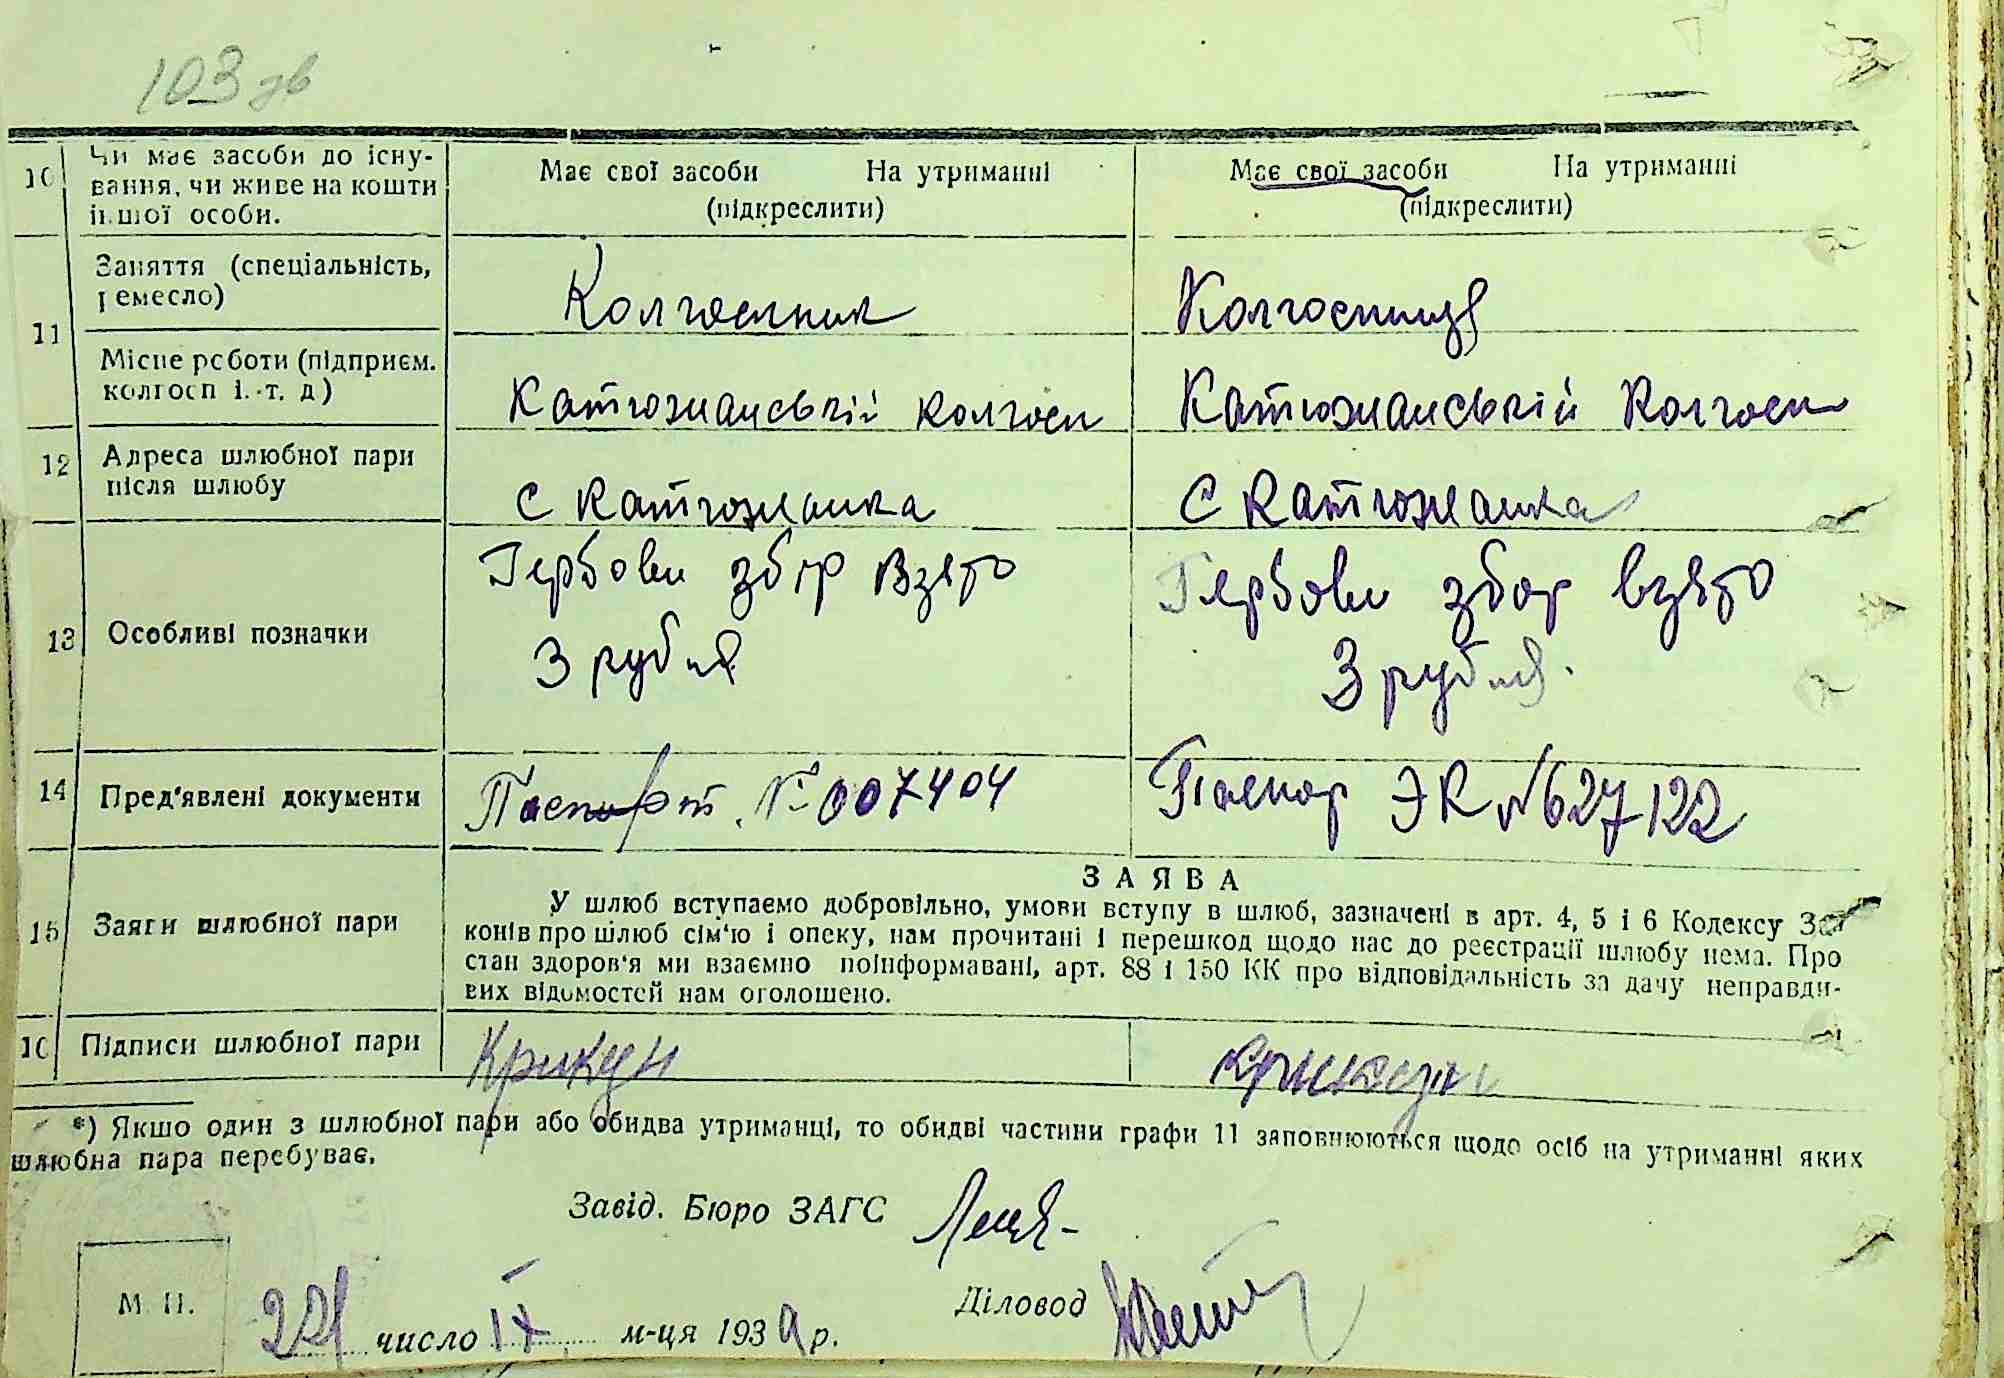 103 зв
10 Чи має засоби до існу-
вання, чи живе на кошти
іншої особи.
Має свої засоби На утриманні
(підкреслити)
Має свої засоби На утриманні
(підкреслити)
11 Заняття (спеціальність,
ремесло)
Колгоспник
Колгоспниця
Місце роботи (підприєм.
колгосп і. т. д)
Катюжанській колгосп
Катюжанській Колгосп
12 Адреса шлюбної пари
після шлюбу
с Катюжанка
с Катюжанка
13 Особливі позначки
Гербови збір взято
3 рубля
Гербови збор взято
3 рубля.
14 Пред'явлені документи
Паспорт. № 007404
Паспор ЭК № 627122
15 Заяви шлюбної пари
ЗАЯВА
У шлюб вступаємо добровільно, умови вступу в шлюб, зазначені в арт. 4, 5 і 6 Кодексу За-
конів про шлюб сім'ю і опеку, нам прочитані і перешкод щодо нас до реєстрації шлюбу нема. Про
стан здоров'я ми взаємно поінформавані, арт. 88 і 150 КК про відповідальність за дачу неправди-
вих відомостей нам оголошено.
16 Підписи шлюбної пари
Крикун
Крикун
*) Якшо один з шлюбної пари або обидва утриманці, то обидві частини графи 11 заповнюються щодо осіб на утриманні яких
шлюбна пара перебуває.
Завід. Бюро ЗАГС
Діловод
М П.
число ІХ м-ця 1939 р.